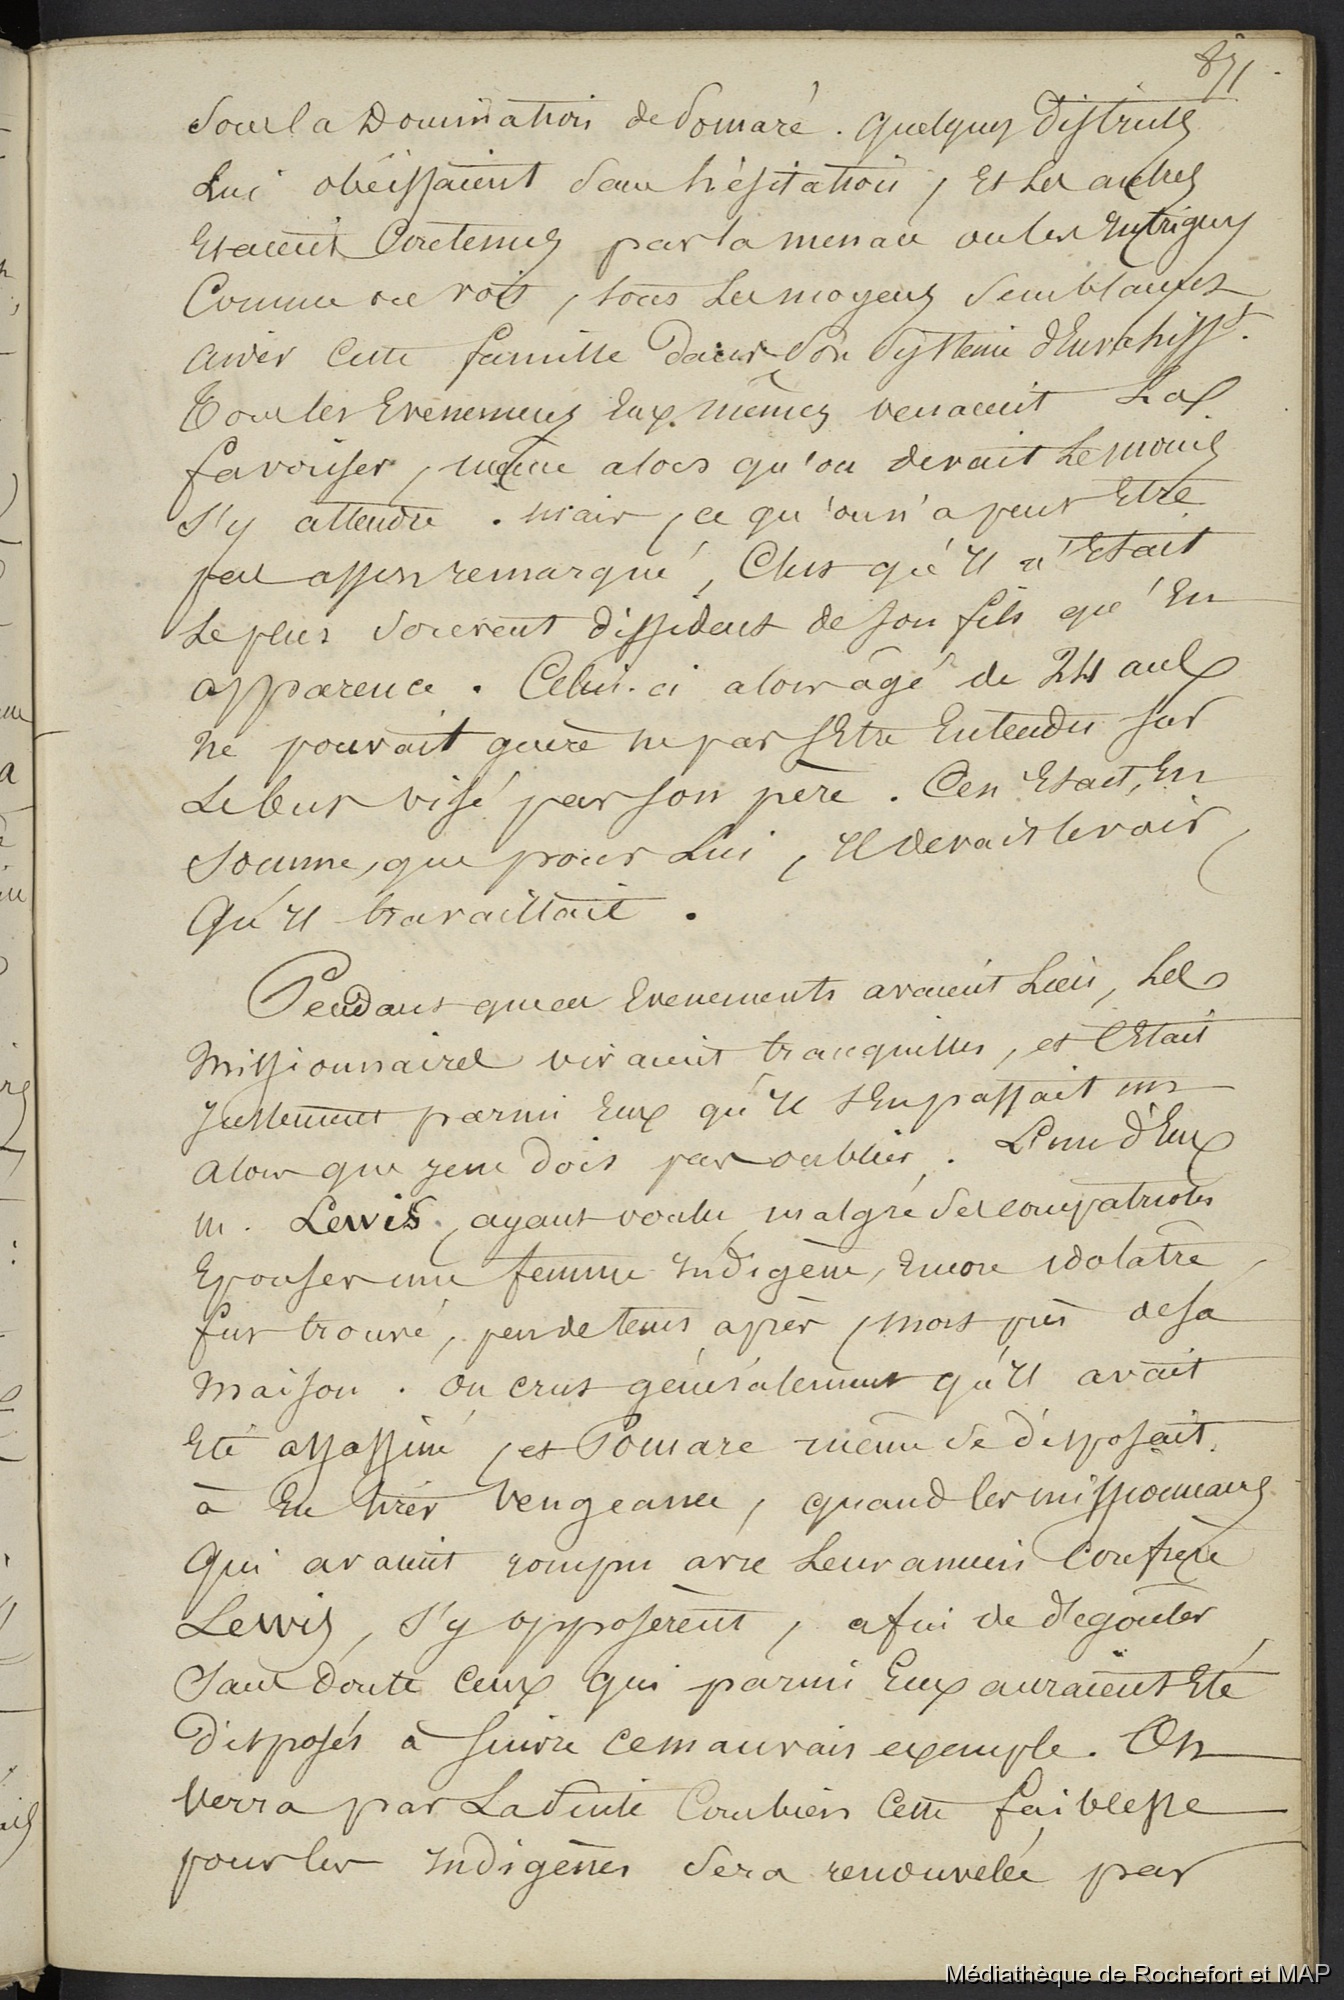 871
Sous la Domination de Pomaré. quelques Districts
Lui obéissaient sans hésitation, Et Les autres
Etaient Contenus par la menace ou les Entrigues
Comme on voit, tous Les moyens Semblaient
aider Cette famille Dans Son Système d'Envahisst.
Tous les Evenemens Eux-mêmes venaient La
favoriser, même alors qu'on devait Le moins
S'y attendre. mais, ce qu'on n'a peut Etre
pas assez remarqué, C'est qu'Il n'Etait
Le plus Souvent dissident de son fils qu'En
apparence. Celui-ci alors âgé de 24 ans
ne pouvait guère ne pas s'Etre Entendu sur
Le but visé par son père. Ce n'Etait, En
Somme, que pour Lui, Il devait le voir,
Qu'Il travaillait.
Pendant que ces Evenements avaient Lieu, Les
Missionnaires vivaient tranquilles, et C'Etait
Justement parmi Eux qu'Il s'En passait un
alors que je ne dois pas oublier. L'un d'Eux
M. Lewis, ayant voulu malgré Ses compatriotes
Epouser une femme Indigène, Encore idolatre,
fut trouvé, peu de tems après, mort près de sa
Maison. On crut généralement qu'Il avait
Eté assassiné, et Pomare même se disposait
à En tirer Vengeance, quand les missionnaires
Qui avaient rompu avec Leur ancien Confrère
Lewis, s'y opposèrent, afin de dégoûter
Sans doute Ceux qui parmi Eux auraient Eté
Disposés à Suivre ce mauvais exemple. On
Verra par La Suite Combien Cette faiblesse
pour les Indigènes Sera renouvelée par
Médiathèque de Rochefort et MAP